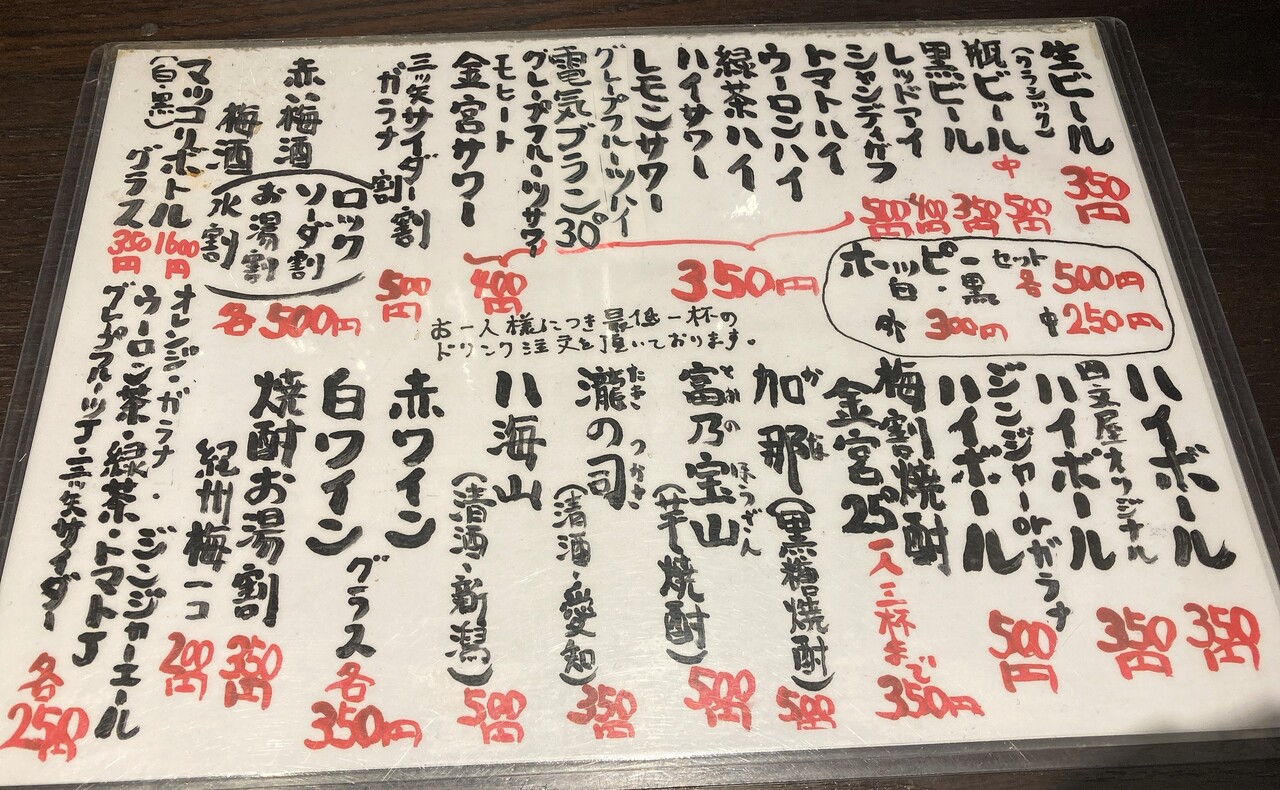 生ビール
(クラシック)
350円
瓶ビール 中
500円
黒ビール
350円
レッドアイ
400円
シャンディガフ
500円
トマトハイ
ウーロンハイ
緑茶ハイ
ハイサワー
レモンサワー
グレープフルーツハイ
電気ブラン30°
350円
グレープフルーツサワー
モヒート
金宮サワー
400円
三ッ矢サイダー割
ガラナ割
500円
赤い梅酒
梅酒
ロック
ソーダ割
お湯割
水割
各500円
マッコリ
(白・黒)
ボトル
1600円
グラス
350円
ホッピー
白・黒
セット各500円
外300円
中250円
お一人様につき最低一杯の
ドリンク注文を頂いております。
ハイボール
350円
四文屋オリジナル
ハイボール
350円
ジンジャーorガラナ
ハイボール
500円
梅割焼酎
金宮25°
一人三杯まで
350円
加那
かな
(黒糖焼酎)
500円
富乃宝山
とみのほうざん
(芋焼酎)
500円
瀧の司
たきつかさ
(清酒・愛知)
350円
八海山
(清酒・新潟)
500円
赤ワイン
白ワイン
グラス
各350円
焼酎お湯割
350円
紀州梅一コ
200円
オレンジ・ガラナ・ジンジャーエール
ウーロン茶・緑茶・トマトJ
グレープフルーツJ・三ッ矢サイダー
各250円